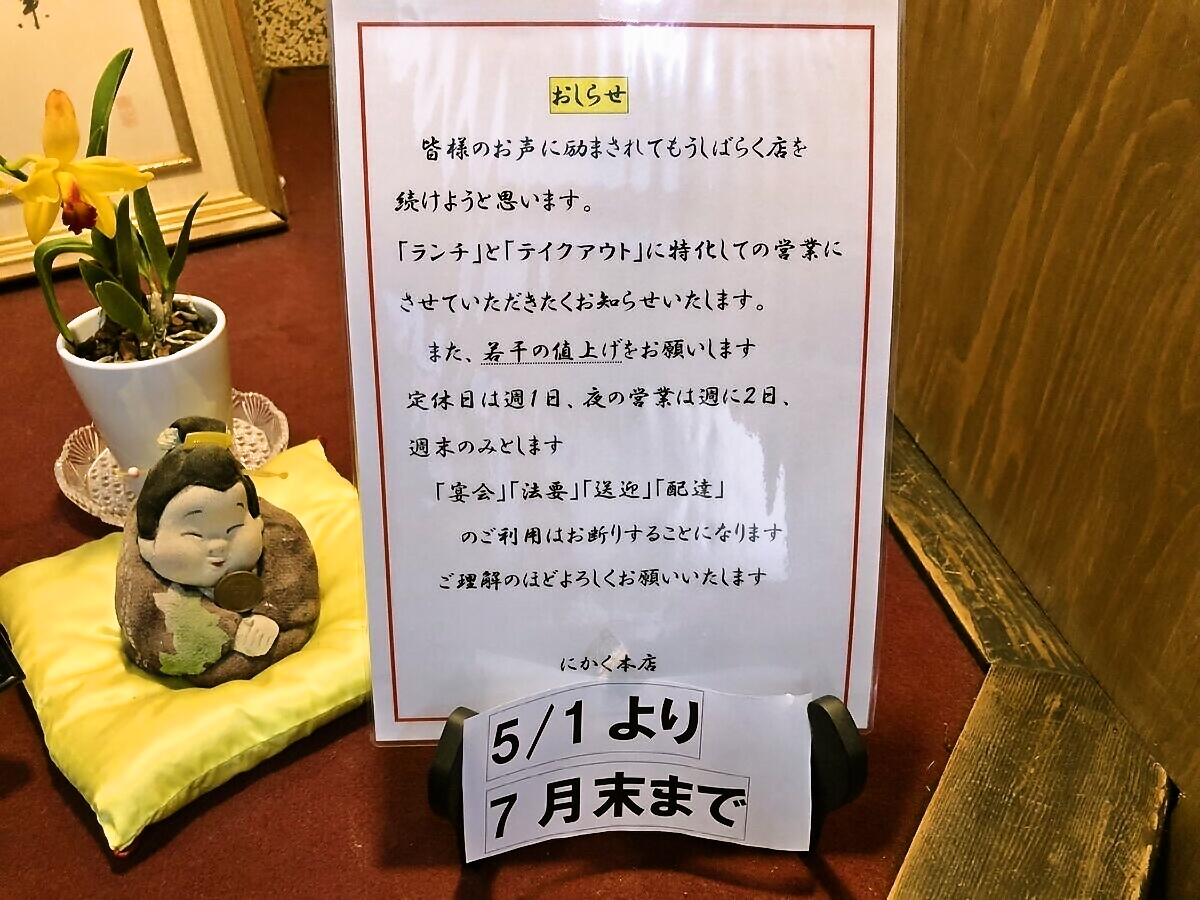 おしらせ
皆様のお声に励まされてもうしばらく店を
続けようと思います。
「ランチ」と「テイクアウト」に特化しての営業に
させていただきたくお知らせいたします。
また、若干の値上げをお願いします
定休日は週1日、夜の営業は週に2日、
週末のみとします
「宴会」「法要」「送迎」「配達」
のご利用はお断りすることになります
ご理解のほどよろしくお願いいたします
にかく本店
5/1より
7月末まで